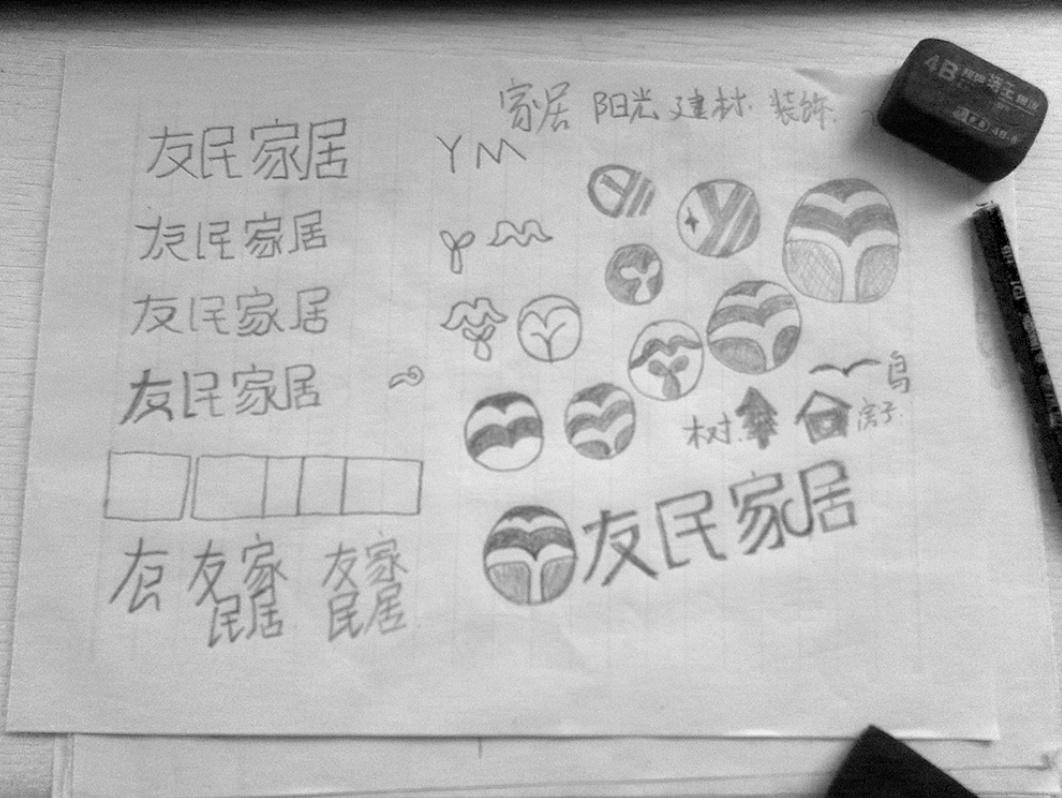 家居 阳光 建材 装饰
友民家居
YM
友民家居
友民家居
友民家居
鸟
树
房子
友民家居
友
友家
民居
友家
民居
4B